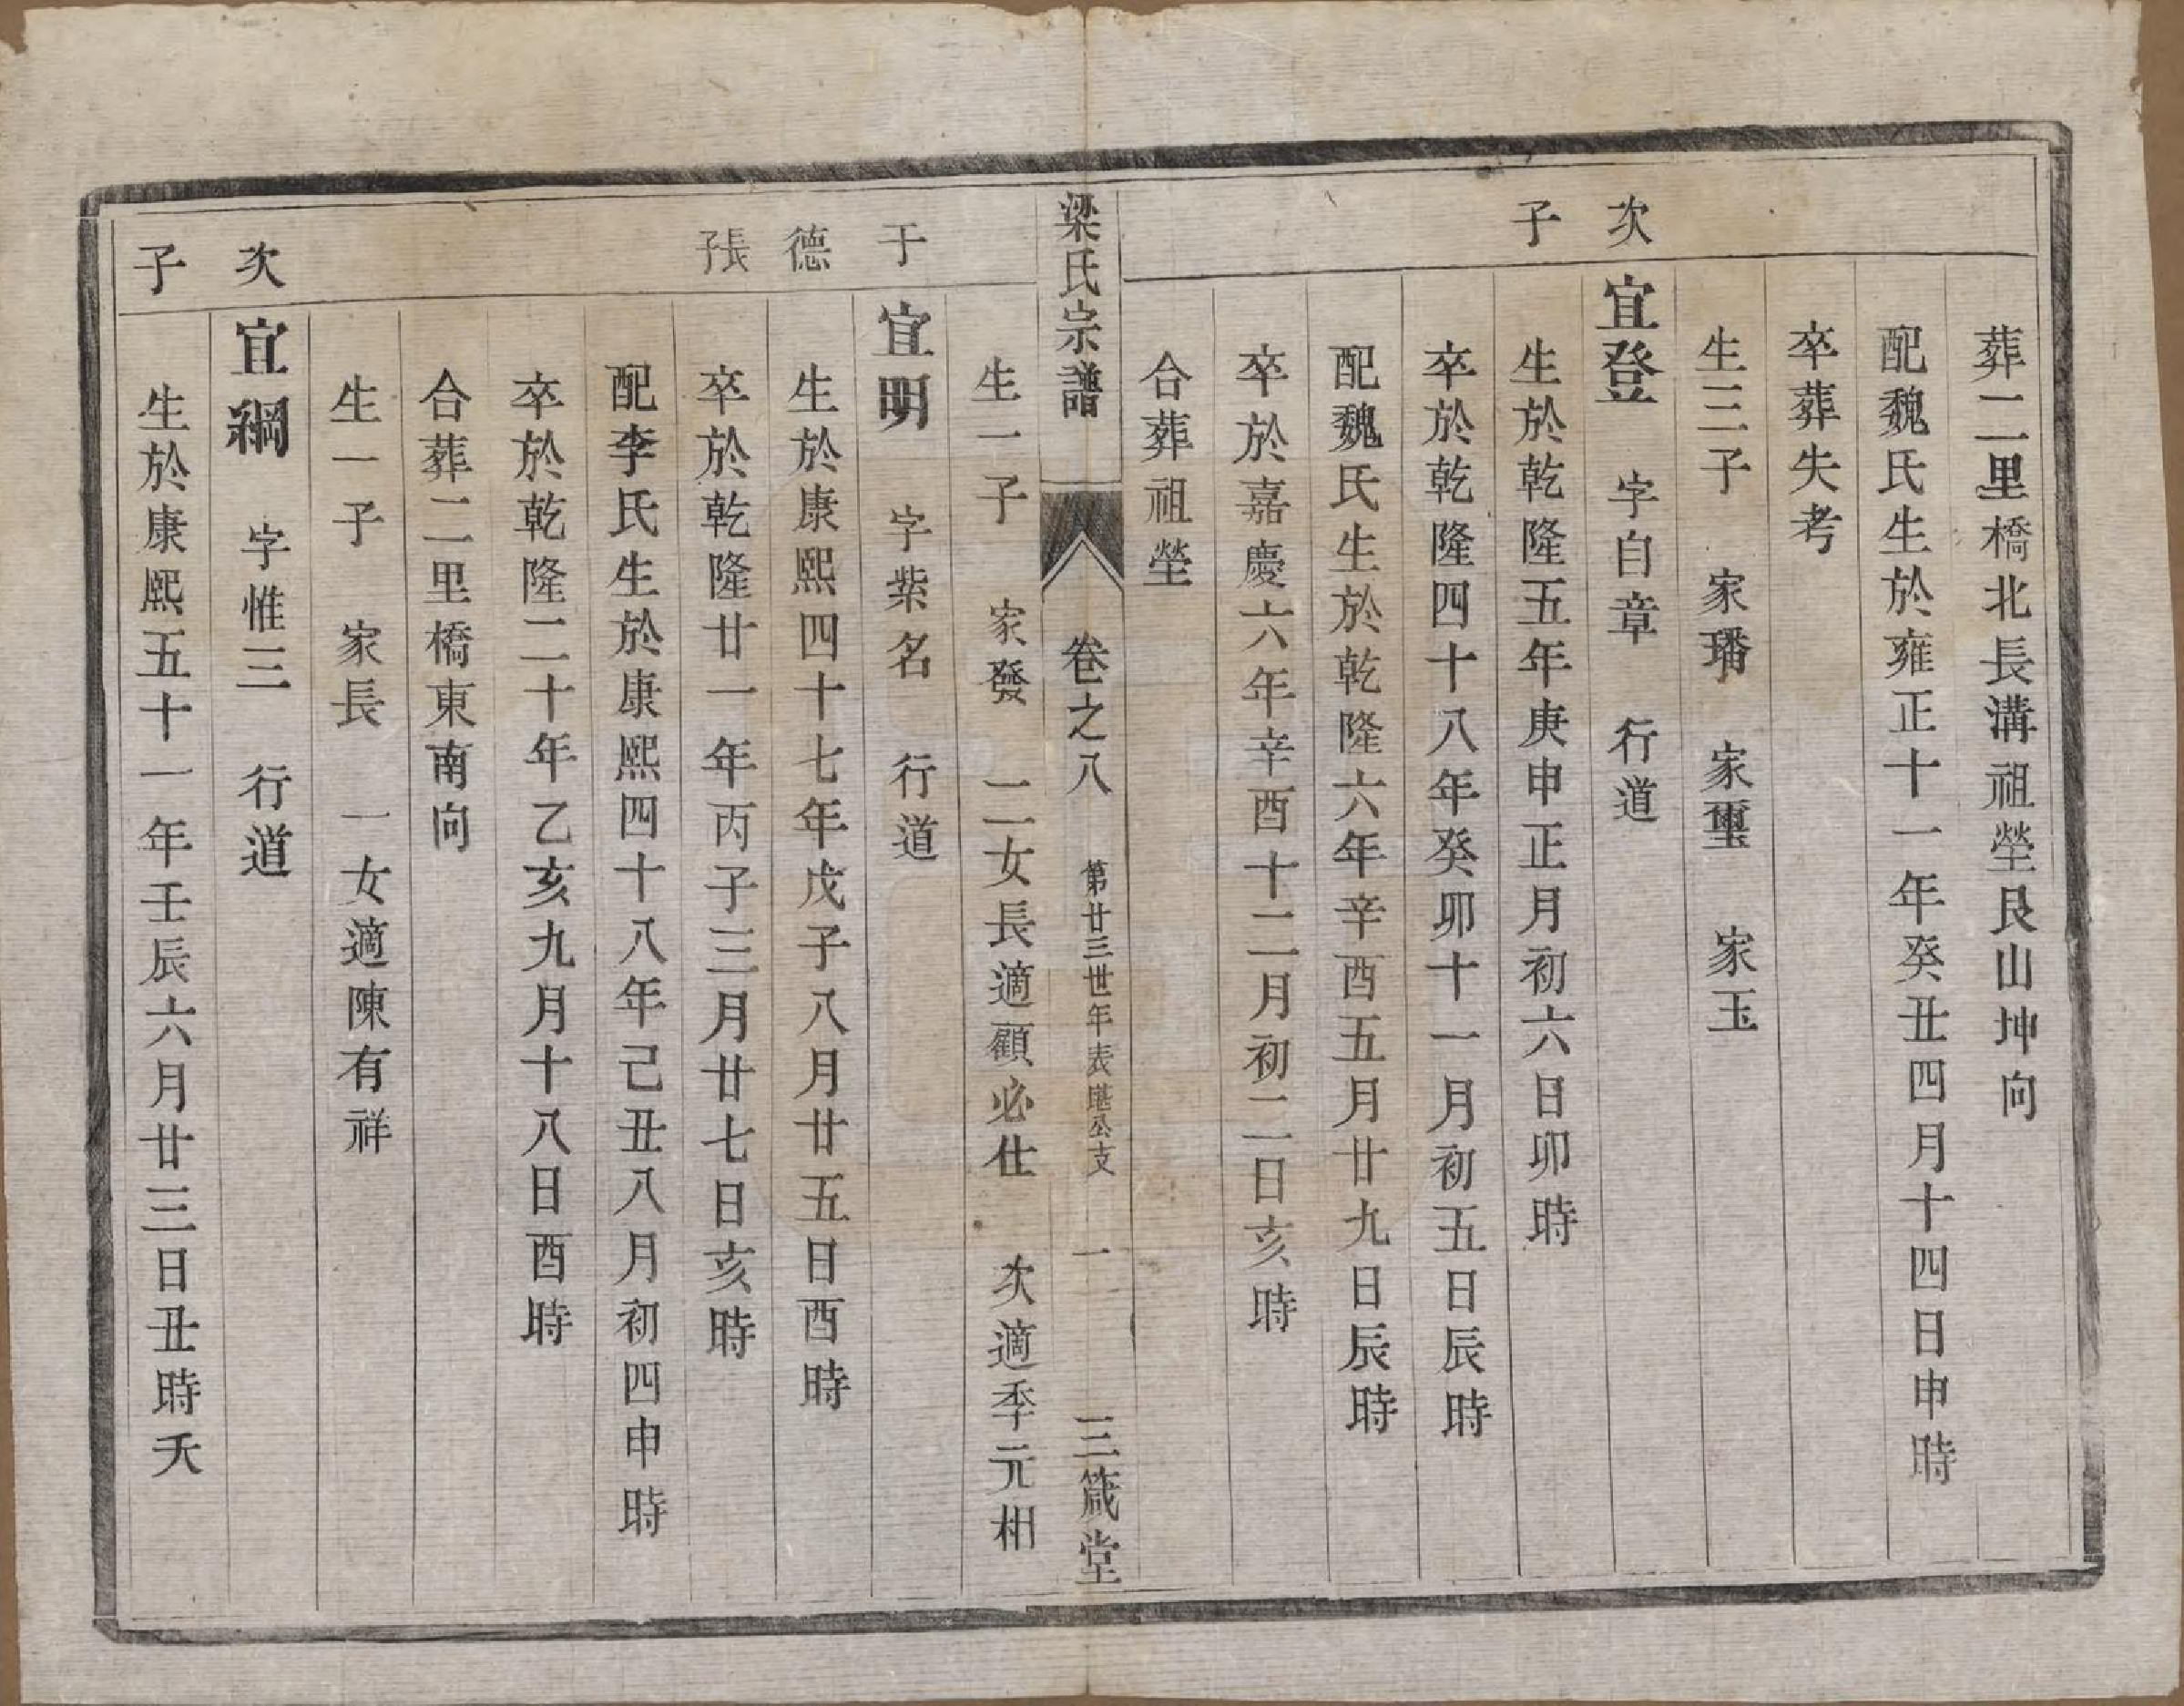 葬二里橋北長溝祖塋艮山坤向
配魏氏生於雍正十一年癸丑四月十四日申時
卒葬失考
生三子　家璠　家璽　家玉
次子
宜登　字自章　行道
生於乾隆五年庚申正月初六日卯時
卒於乾隆四十八年癸卯十一月初五日辰時
配魏氏生於乾隆六年辛酉五月廿九日辰時
卒於嘉慶六年辛酉十二月初二日亥時
合葬祖塋
梁氏宗譜　卷之八　第廿三世年表　公支　一　三箴堂
生一子　家發　二女長適顧必仕　次適季元相
于德長子
宜明　字紫名　行道
生於康熙四十七年戊子八月廿五日酉時
卒於乾隆廿一年丙子三月廿七日亥時
配李氏生於康熙四十八年己丑八月初四申時
卒於乾隆二十年乙亥九月十八日酉時
合葬二里橋東南向
生一子　家長　一女適陳有祥
次子
宜綱　字惟三　行道
生於康熙五十一年壬辰六月廿三日丑時夭